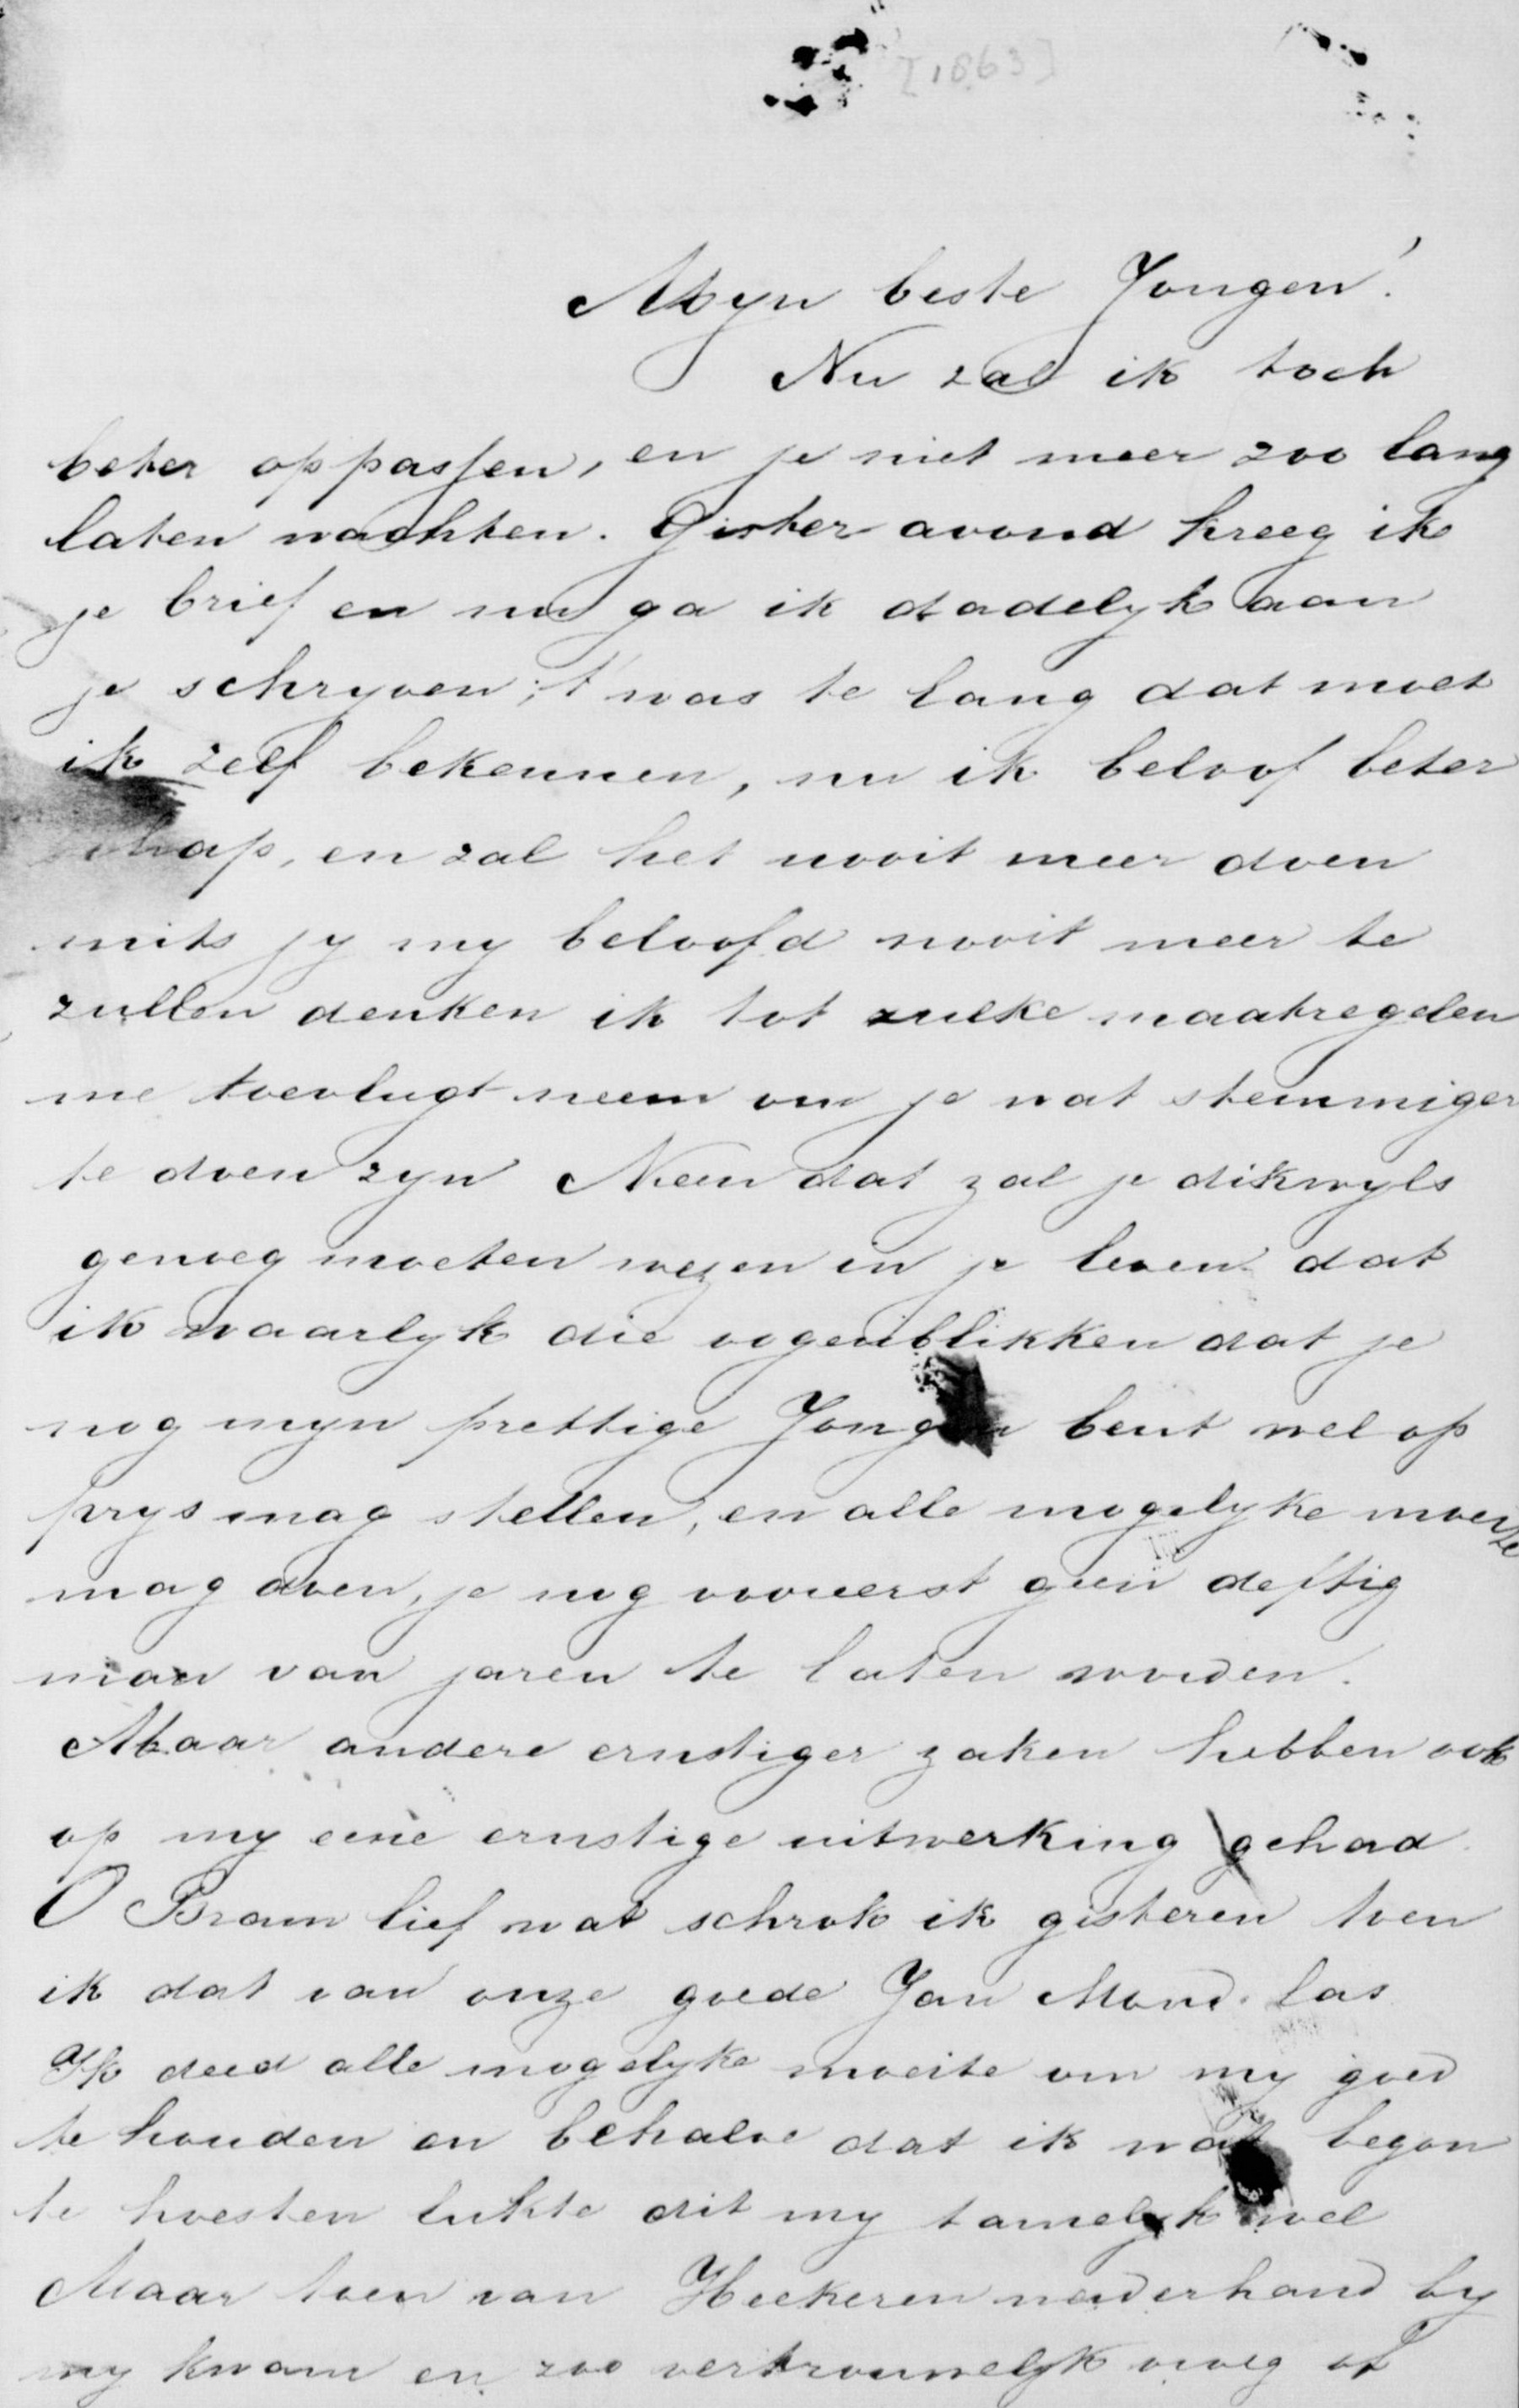 [1863]
Myn beste Jongen!
Nu zal ik toch
beter oppassen, en je niet meer zoo lang
laten wachten. Gister avond kreeg ik
je brief en nu ga ik dadelyk aan
je schryven; t was te lang dat moet
ik zelf bekennen, nu ik beloof beter
schap, en zal het nooit meer doen
mits jy my beloofd nooit meer te
zullen denken ik tot zulke maatregelen
me toevlugt neem om je wat stemmiger
te doen zyn Neen dat zal je dikwyls
genoeg moeten wezen in je leven dat
ik waarlyk die oogenblikken dat je
nog myn prettige Jongen bent wel op
prys mag stellen, en alle mogelyke moeite
mag doen, je nog vooreerst geen deftig
man van jaren te laten worden.
Maar andere ernstiger zaken hebben ook
op my eene ernstige uitwerking gehad.
O Bram lief wat schrok ik gisteren toen
ik dat van onze goede Jan Mond. las
Ik deed alle mogelyke moeite om my goed
te houden en behalve dat ik wat began
te hoesten lukte dit my tamelyk wel
Maar toen van Heekeren naderhand by
my kwam en zoo vertrouwelyk vroeg of